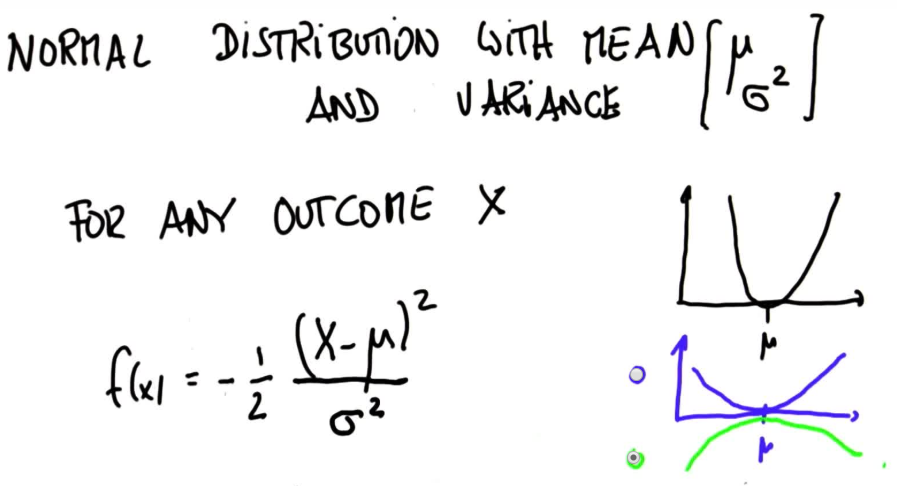 NORMAL DISTRIBUTION WITH MEAN [μ
AND VARIANCE σ²]
FOR ANY OUTCOME X
f(x) = - 1/2 (X-μ)²/σ²
μ
μ